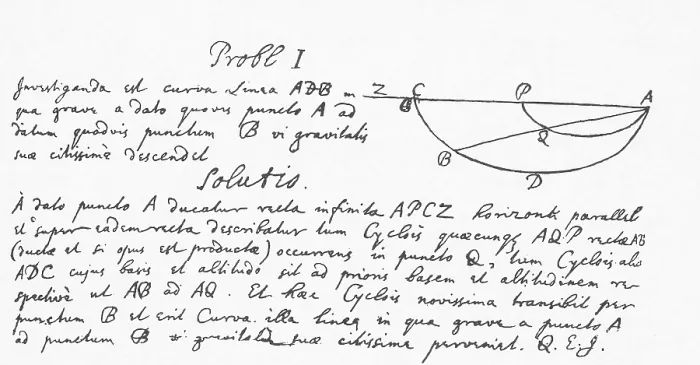 Probl I
Investiganda est curva Linea ADB in
qua grave a dato quovis puncto A ad
datum quodvis punctum B vi gravitatis
suæ citissimè descendet
Solutio.
À dato puncto A ducatur recta infinita APCZ horizonti parallela
et super eadem recta describatur tum Cyclois quæcunq AQP rectæ AB
(ductæ et si opus est productæ) occurrens in puncto Q, tum Cyclois alia
ADC cujus basis et altitudo sit ad prioris basem et altitudinem re-
spectivè ut AB ad AQ. Et hæc Cyclois novissima transibit per
punctum B et erit Curva illa linea in qua grave a puncto A
ad punctum B vi gravitatis suæ citissime perveniet. Q.E.J.
Z C P A
B Q
D